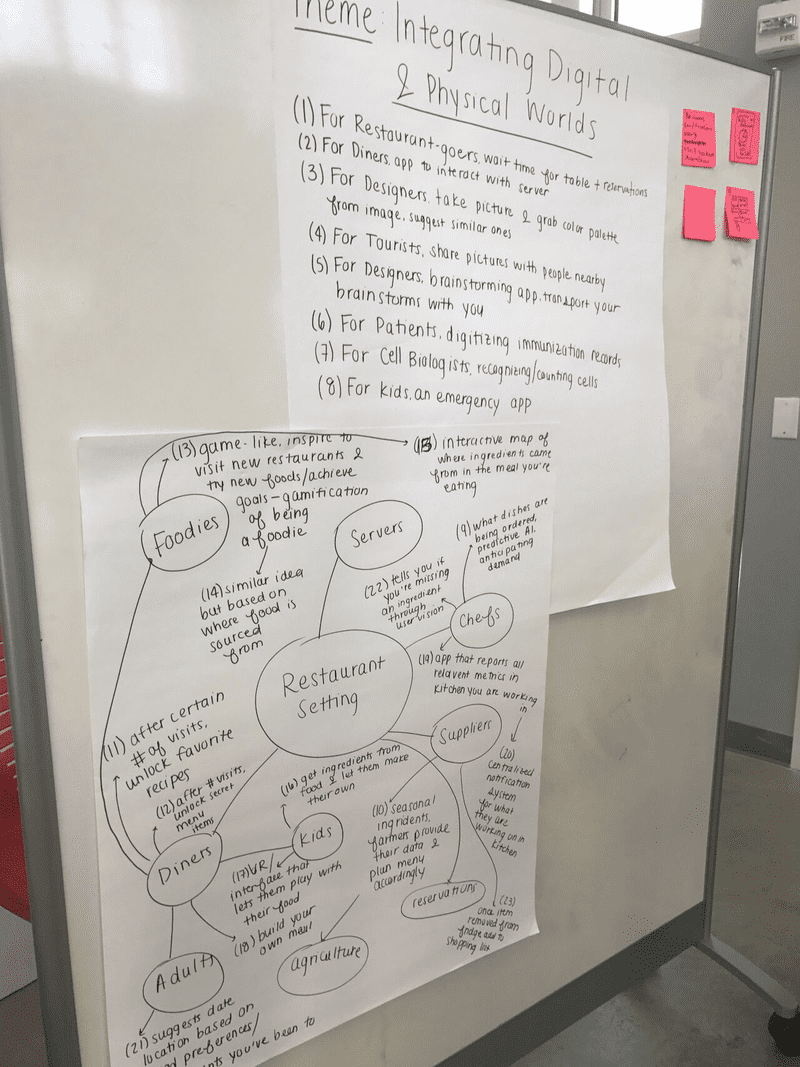 Theme: Integrating Digital
& Physical Worlds
(1) For Restaurant-goers, wait time for table + reservations
(2) For Diners, app to interact with server
(3) For Designers, take picture & grab color palette
from image, suggest similar ones
(4) For Tourists, share pictures with people nearby
(5) For Designers, brainstorming app, transport your
brainstorms with you
(6) For Patients, digitizing immunization records
(7) For Cell Biologists, recognizing/counting cells
(8) For kids, an emergency app
FIRE
(13) game-like, inspire to
visit new restaurants &
try new foods/achieve
goals - gamification
of being
a foodie
(15) interactive map of
where ingredients came
from in the meal you're
eating
Foodies
Servers
(9) what dishes are
being ordered,
predictive AI.
anticipating
demand
(14) similar idea
but based on
where food is
sourced
from
(22) tells you if
you're missing
an ingredient
through
user vision
Chefs
Restaurant
Setting
(19) app that reports all
relavent metrics in
kitchen you are working
in
Suppliers
(20)
Centralized
notification
system
for what
they are
working on in
kitchen
(11) after certain
# of visits,
unlock favorite
recipes
(12) after # visits,
unlock secret
menu
items
(16) get ingredients from
food & let them make
their own
Kids
(10) seasonal
ingridents,
farmers provide
their data &
plan menu
accordingly
Diners
(17) VR/
interface that
lets them play with
their food
(18) build your
own meal
reservations
(23)
once item
removed from
fridge add to
shopping list
agriculture
Adults
(21) suggests date
location based on
preferences/
you've been to